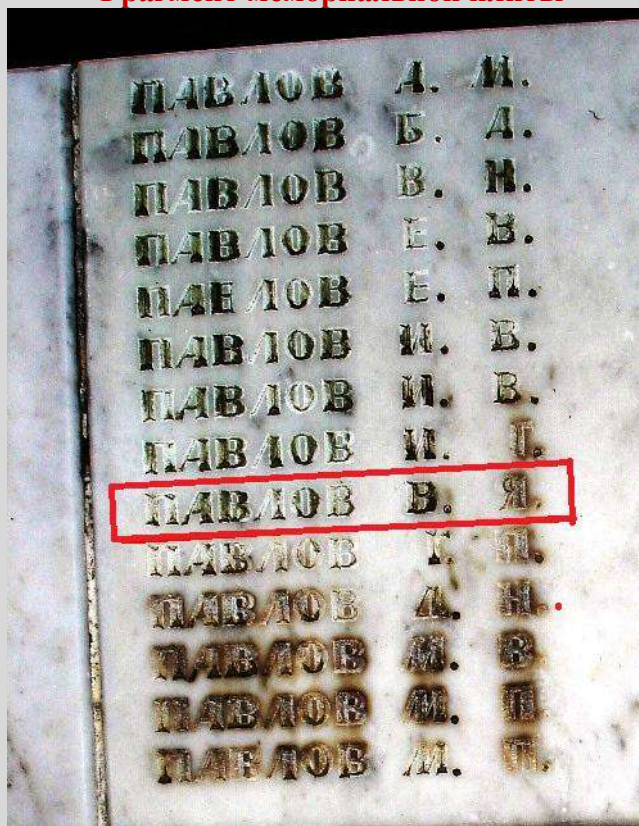 Фрагмент мемориальной плиты
ПАВЛОВ А. М.
ПАВЛОВ Б. А.
ПАВЛОВ В. Н.
ПАВЛОВ Е. В.
ПАВЛОВ Е. П.
ПАВЛОВ И. В.
ПАВЛОВ И. В.
ПАВЛОВ И. Г.
ПАВЛОВ В. Я.
ПАВЛОВ П.
ПАВЛОВ Д. Н.
ПАВЛОВ М. В.
ПАВЛОВ М. П.
ПАВЛОВ М. П.